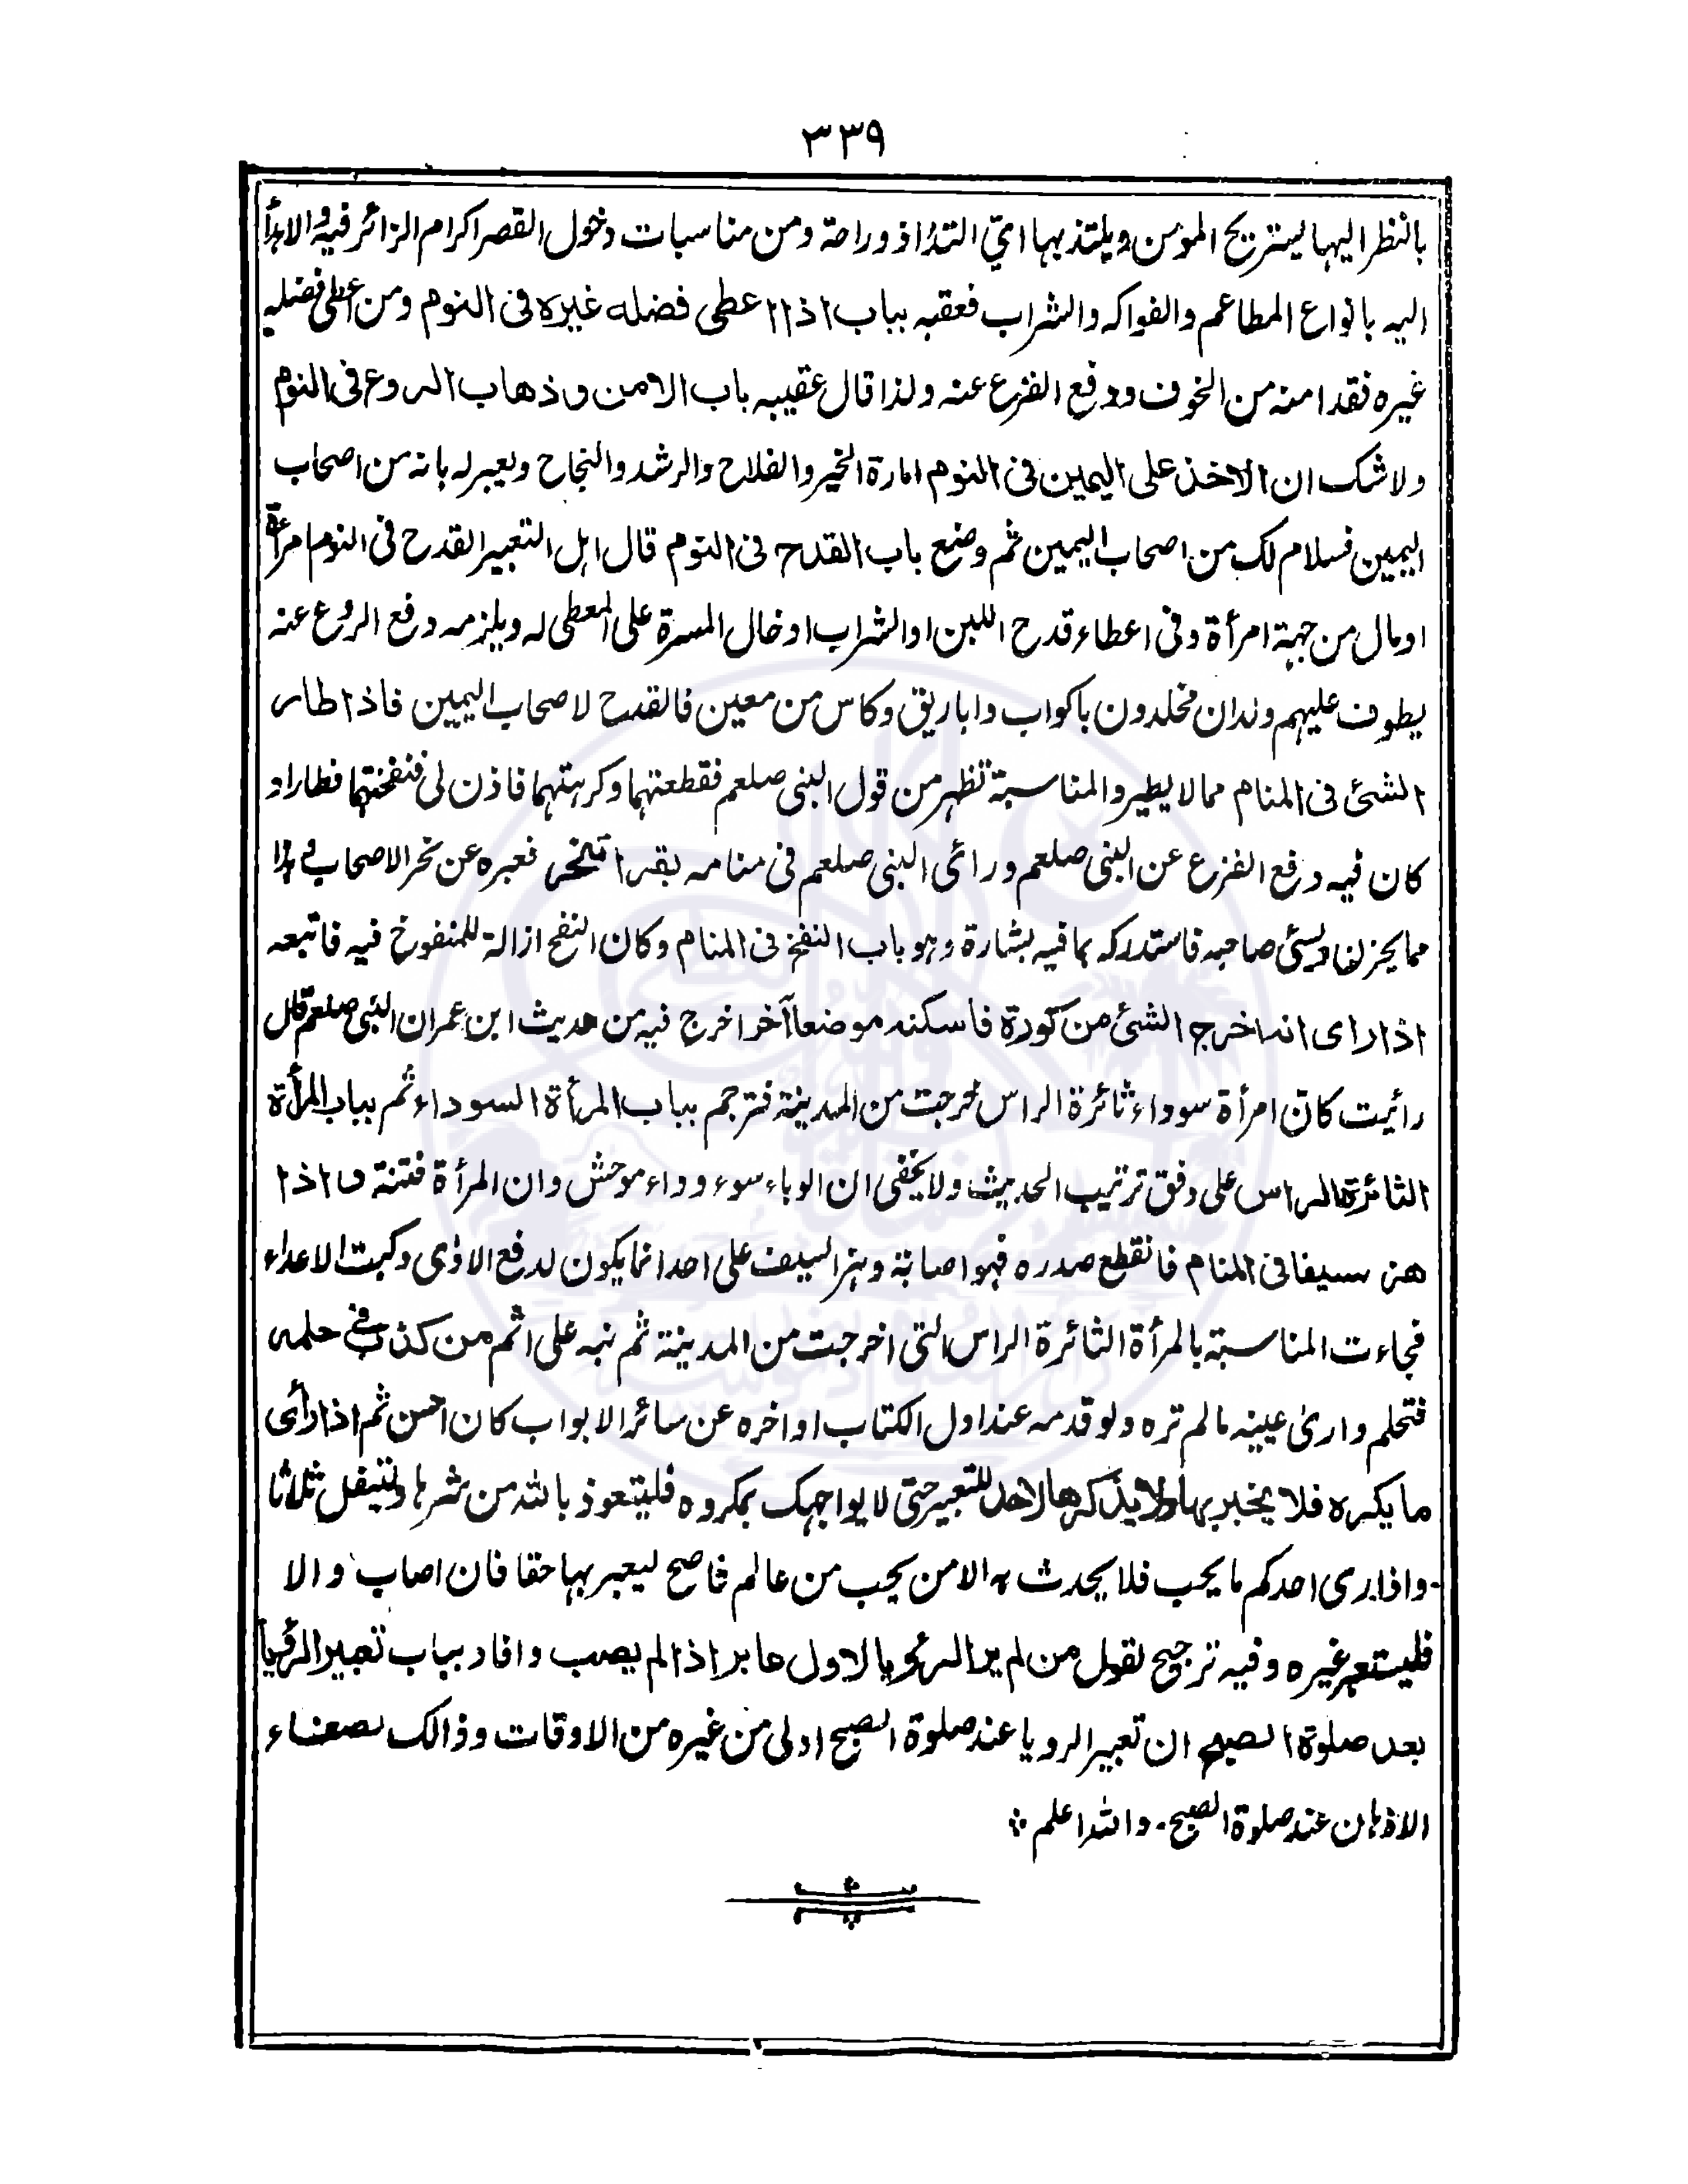 ٣٣٩
بالنظر اليها ليستريح المومن ويلتذ بها اىّ التذاذ وراحة ومن مناسبات دخول القصر اكرام الزائر فيه والاهدأ
اليه بانواع المطاعم والفواكه والشراب فعقبه بباب اذا اعطى فضله غيره فى النوم ومن اعطى فضله
غيره فقد امنه من الخوف ودفع الفزع عنه ولذا قال عقيبه باب الامن وذهاب الروع فى النوم
ولاشك ان الاخذ على اليمين فى النوم امارة الخير والفلاح والرشد والنجاح ويعبر له بانه من اصحاب
اليمين فسلام لك من اصحاب اليمين ثم وضع باب القدح فى النوم قال اهل التعبير القدح فى النوم امرأة
اومال من جهة امرأة وفى اعطاء قدح اللبن او الشراب ادخال المسرة على المعطى له ويلزمه دفع الروع عنه
يطوف عليهم ولدان مخلدون باكواب واباريق وكاس من معين فالقدح لاصحاب اليمين فاذا طار
الشئ فى المنام مما لا يطير والمناسبة تظهر من قول النبى صلعم فقطعتهما وكرهتهما فاذن لى فنفختهما فطارا و
كان فيه دفع الفزع عن النبى صلعم ورائى النبى صلعم فى منامه بقرا تنحر فعبره عن نحر الاصحاب و هذا
مما يحزن ويسئ صاحبه فاستدركه بما فيه بشارة وهو باب النفخ فى المنام وكان النفخ ازالة للمنفوخ فيه فاتبعه
اذا راى انه اخرج الشئ من كورة فاسكنه موضعا آخر اخرج فيه من حديث ابن عمر ان النبى صلعم قال
رائيت كان امرأة سوداء ثائرة الراس خرجت من المدينة فترجم بباب المرأة السوداء ثم بباب المرأة
الثائرة الراس على وفق ترتيب الحديث ولا يخفى ان الوباء سوء وداء موحش وان المرأة فتنة واذا
هز سيفا فى المنام فانقطع صدره فهو اصابة وهز السيف على احد انما يكون لدفع الاذى وكبت الاعداء
فجاءت المناسبة بالمرأة الثائرة الراس التى اخرجت من المدينة ثم نبه على اثم من كذب فى حلمه
فتحلم وارىٰ عينيه مالم تره ولو قدمه عند اول الكتاب او اخره عن سائر الابواب كان احسن ثم اذا رأى
ما يكره فلا يخبر بها ولا يذكرها لاحد للتعبير حتى لا يواجهك بمكروه فليتعوذ بالله من شرها وليتفل ثلاثا
واذا رى احدكم ما يحب فلا يحدث به الا من يحب من عالم ناصح ليعبر بها حقا فان اصاب والا
فليستعبر غيره وفيه ترجيح لقول من لم ير الرؤيا لاول عابر اذا لم يصب وافاد بباب تعبير الرؤيا
بعد صلوة الصبح ان تعبير الرويا عند صلوة الصبح اولى من غيره من الاوقات وذالك لصفاء
الاذهان عند صلوة الصبح۔ والله اعلم